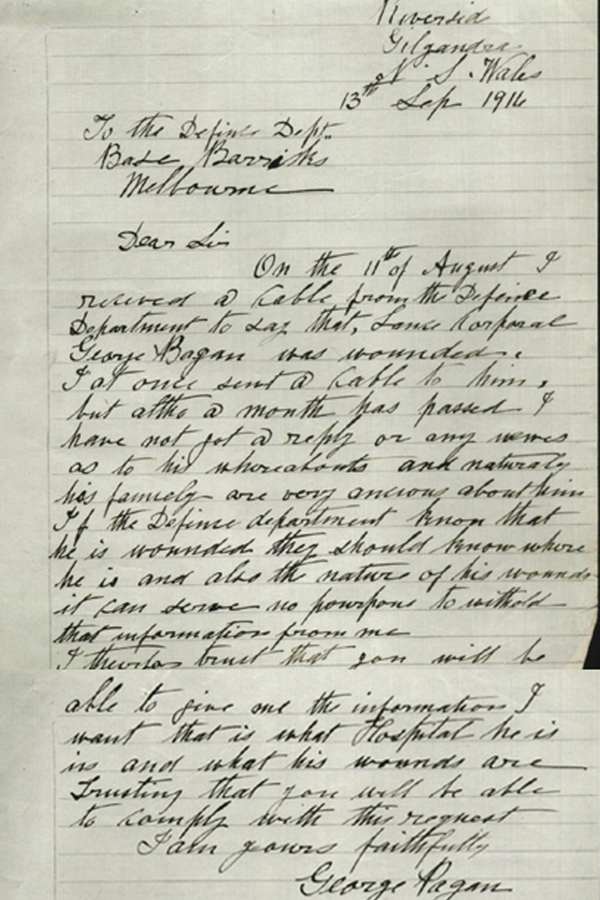 Riversid
Gilgandra
N. S. Wales
13th Sep 1916
To the Defince Dept.
Base Barricks
Melbourne
Dear Sir
On the 11th of August I
recieved a Cable from the Defince
Department to say that, Lance Corporal
George Pagan was wounded.
I at once sent a Cable to him,
but altho a month has passed I
have not got a reply or any newes
as to his whereabouts and naturaly
his famiely are very ancious about him
If the Defince department know that
he is wounded they should know where
he is and also the nature of his wounds
it can serve no pourpous to withold
that information from me
I therfor trust that you will be
able to give me the information I
want that is what Hospital he is
in and what his wounds are
Trusting that you will be able
to comply with this request
I am yours faithfully
George Pagan